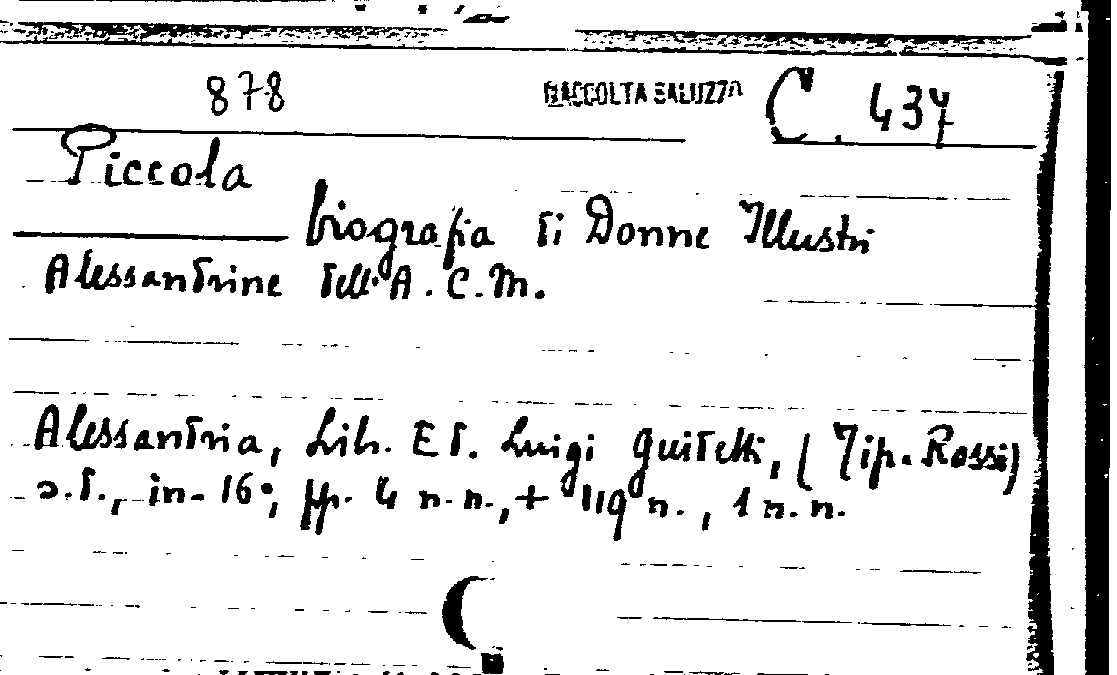 878 RACCOLTA SALUZZO C. 437
Piccola
biografia di Donne Illustri
Alessandrine dell'A.C.M.
Alessandria, Lib. Ed. Luigi Guidetti, (Tip. Rossi)
s.d., in-16°, pp. 4 n.n., + 119 n., 1 n.n.